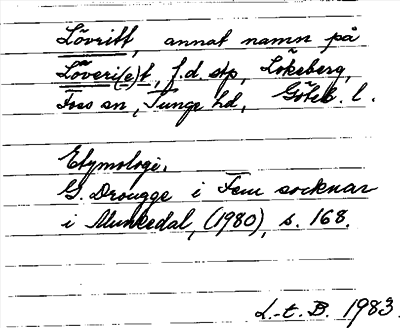 Lövritt, annat namn på
Löveri(e)t, f.d. stp, Lökeberg,
Foss sn, Tunge hd, Göteb. l.
Etymologi.
G. Drougge i Fem socknar
i Munkedal, (1980), s. 168.
L.-t. B. 1983.